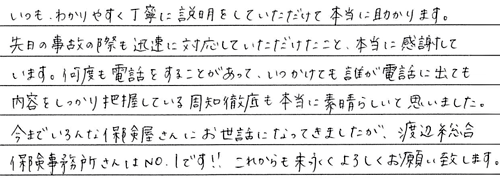 いつも、わかりやすく丁寧に説明をしていただけて本当に助かります。
先日の事故の際も迅速に対応していただけたこと、本当に感謝して
います。何度も電話をすることがあって、いつかけても誰が電話に出ても
内容をしっかり把握している周知徹底も本当に素晴らしいと思いました。
今までいろんな保険屋さんにお世話になってきましたが、渡辺総合
保険事務所さんはNO.1です!! これからも末永くよろしくお願い致します。